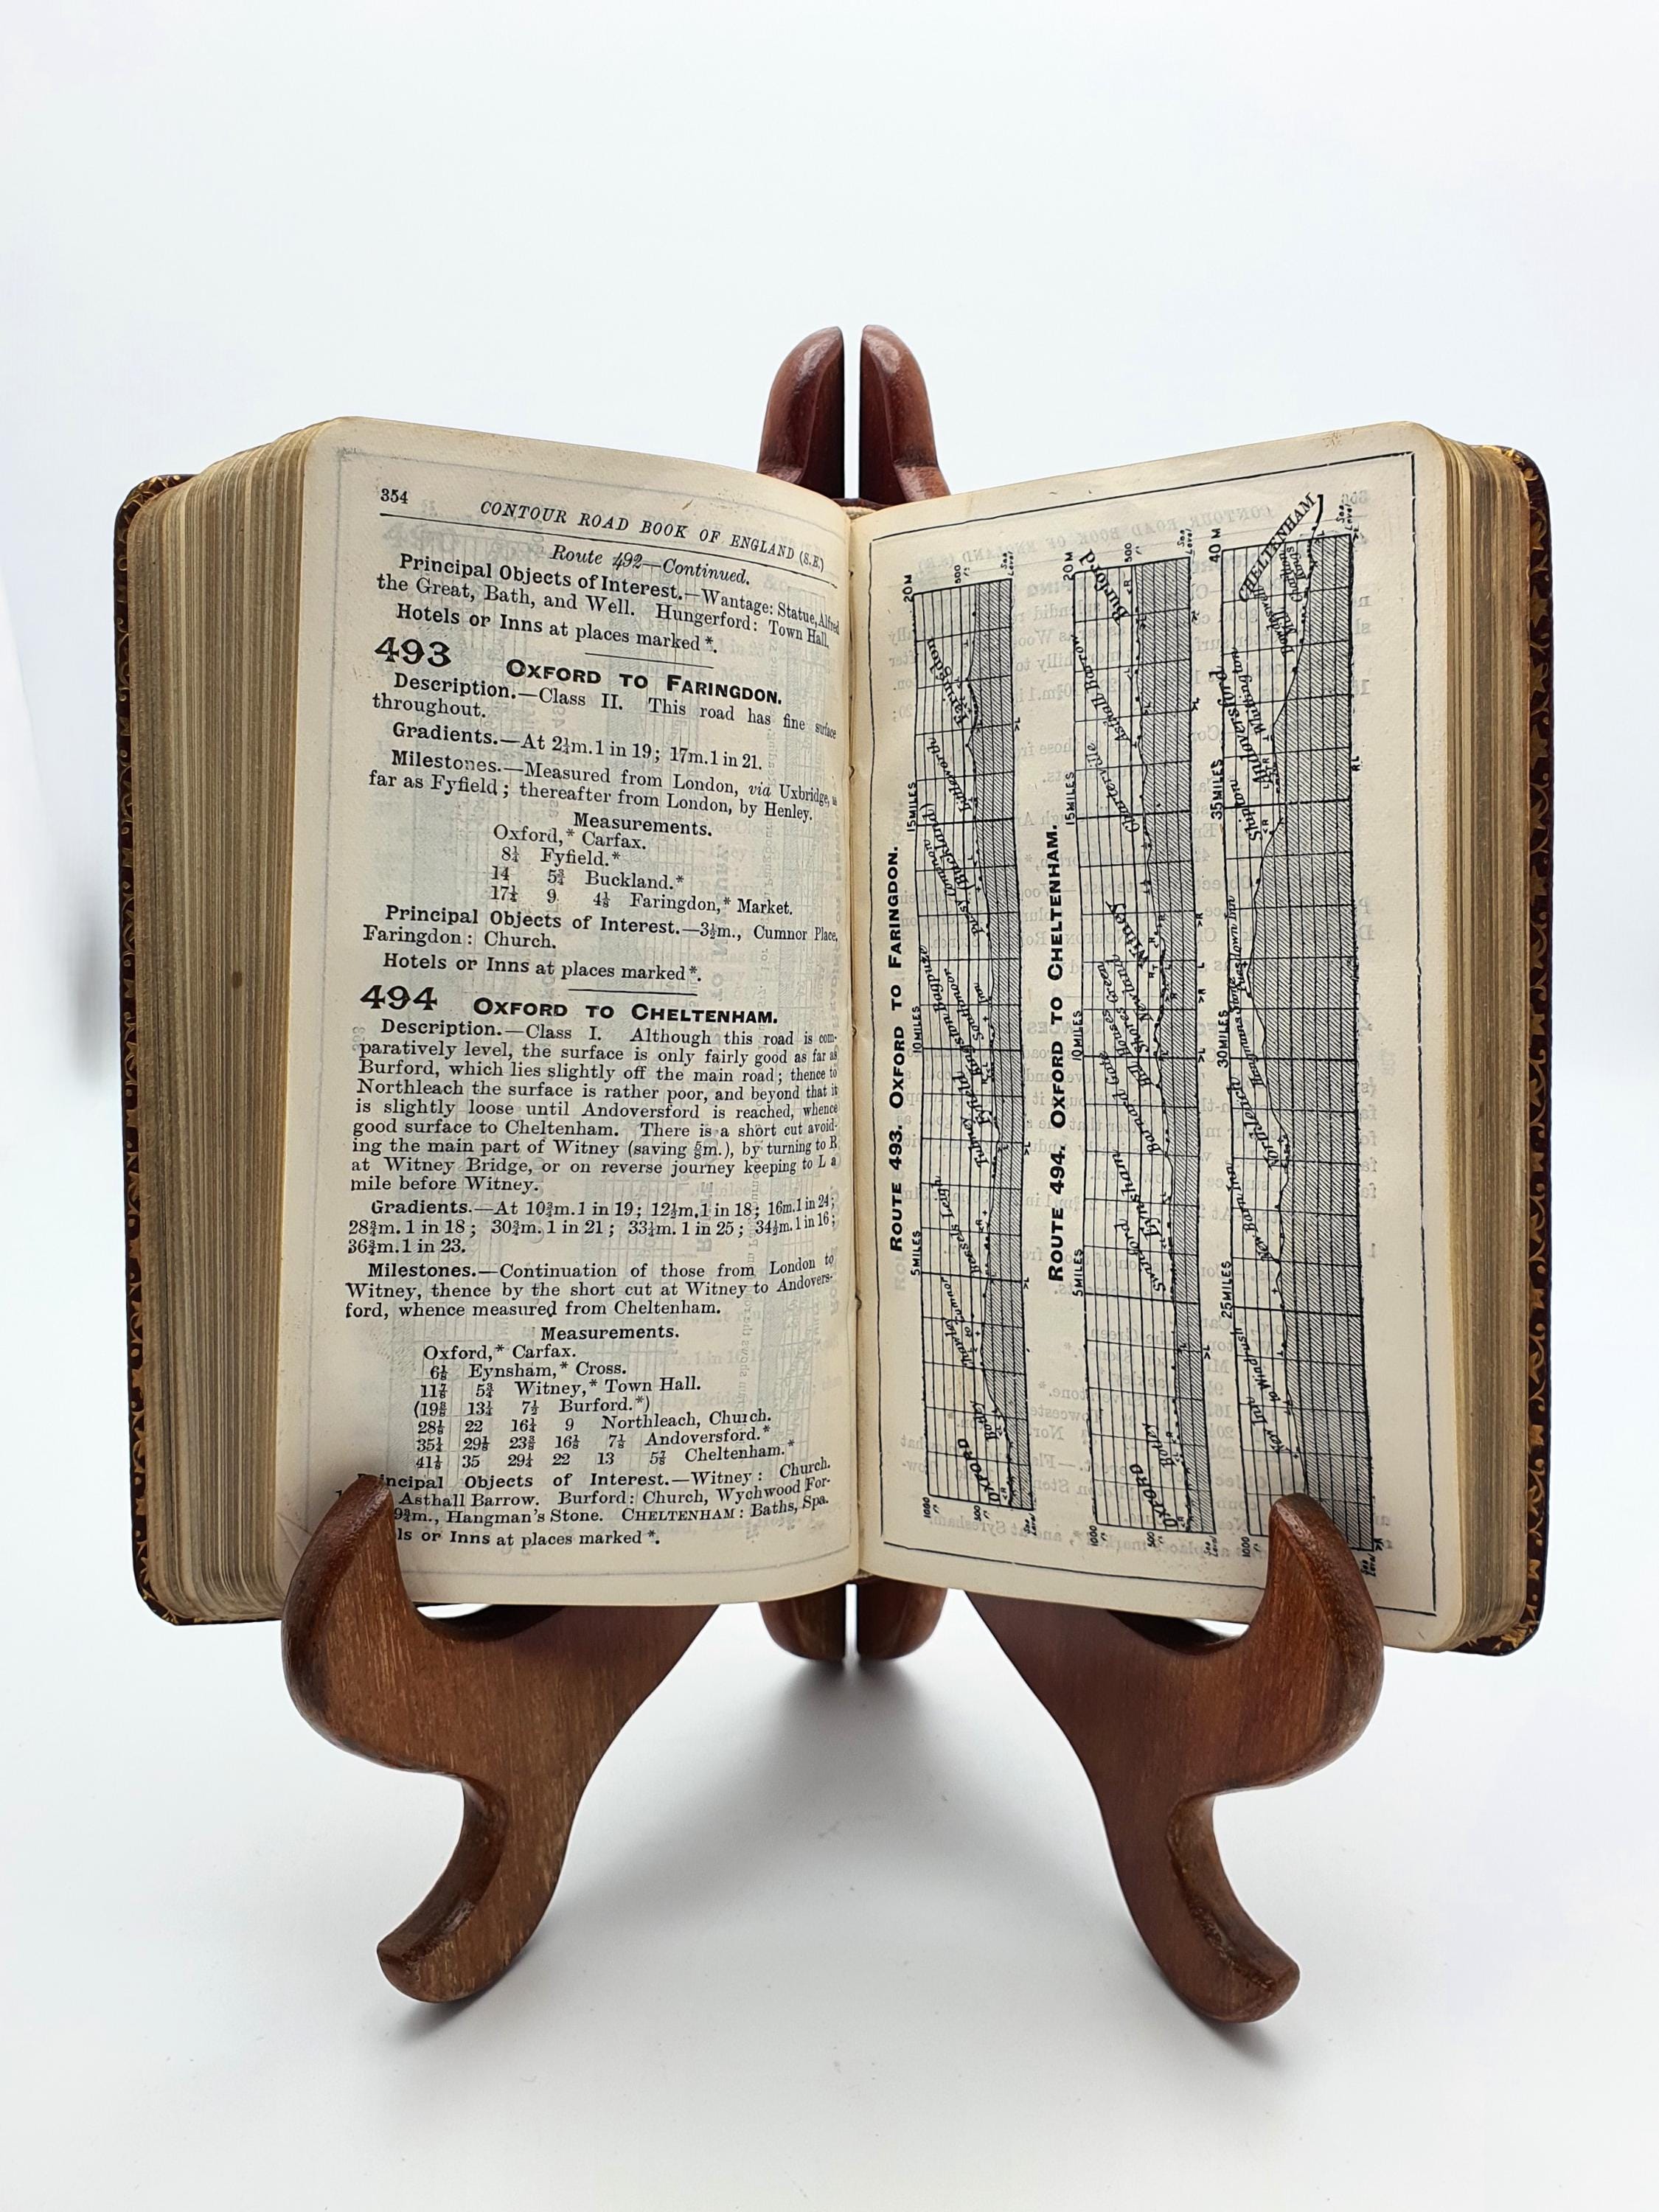 354 CONTOUR ROAD BOOK OF ENGLAND (S.E.)
Route 492—Continued.
Principal Objects of Interest.—Wantage: Statue, Alfred
the Great, Bath, and Well. Hungerford: Town Hall.
Hotels or Inns at places marked *.
493 OXFORD TO FARINGDON.
Description.—Class II. This road has fine surface
throughout.
Gradients.—At 2¼m. 1 in 19; 17m. 1 in 21.
Milestones.—Measured from London, via Uxbridge, as
far as Fyfield; thereafter from London, by Henley.
Measurements.
Oxford,* Carfax.
8¼ Fyfield.*
14 5¾ Buckland.*
17¼ 9 4⅛ Faringdon,* Market.
Principal Objects of Interest.—3½m., Cumnor Place.
Faringdon: Church.
Hotels or Inns at places marked *.
494 OXFORD TO CHELTENHAM.
Description.—Class I. Although this road is com-
paratively level, the surface is only fairly good as far as
Burford, which lies slightly off the main road; thence to
Northleach the surface is rather poor, and beyond that it
is slightly loose until Andoversford is reached, whence
good surface to Cheltenham. There is a short cut avoid-
ing the main part of Witney (saving ⅝m.), by turning to R
at Witney Bridge, or on reverse journey keeping to L a
mile before Witney.
Gradients.—At 10¾m. 1 in 19; 12½m. 1 in 18; 16m. 1 in 24;
28¾m. 1 in 18; 30¾m. 1 in 21; 33¼m. 1 in 25; 34½m. 1 in 16;
36¾m. 1 in 23.
Milestones.—Continuation of those from London to
Witney, thence by the short cut at Witney to Andovers-
ford, whence measured from Cheltenham.
Measurements.
Oxford,* Carfax.
6⅛ Eynsham,* Cross.
11⅞ 5¾ Witney,* Town Hall.
(19⅜ 13¼ 7½ Burford.*)
28⅛ 22 16¼ 9 Northleach, Church.
35¼ 29⅛ 23⅜ 16⅛ 7⅛ Andoversford.*
41⅛ 35 29¼ 22 13 5⅞ Cheltenham.*
Principal Objects of Interest.—Witney: Church.
Asthall Barrow. Burford: Church, Wychwood For-
Hangman's Stone. CHELTENHAM: Baths, Spa.
ls or Inns at places marked *.
ROUTE 493. OXFORD TO FARINGDON.
5 MILES 10 MILES 15 MILES 20 M
OXFORD Botley Cumnor Bessels Leigh Fyfield Kingston Bagpuize Southmoor Littleworth Faringdon
1000 500 Sea Level
ROUTE 494. OXFORD TO CHELTENHAM.
5 MILES 10 MILES 15 MILES 20 M
OXFORD Botley Swinford Eynsham Barnard Gate Newland Witney Charterville Asthall Barrow Burford
1000 500 Sea Level
25 MILES 30 MILES 35 MILES 40 M
New Inn to Windrush New Barn Inn Northleach Hangmans Stone Puesdown Inn Shipton Andoversford Whittington CHELTENHAM
1000 Sea Level